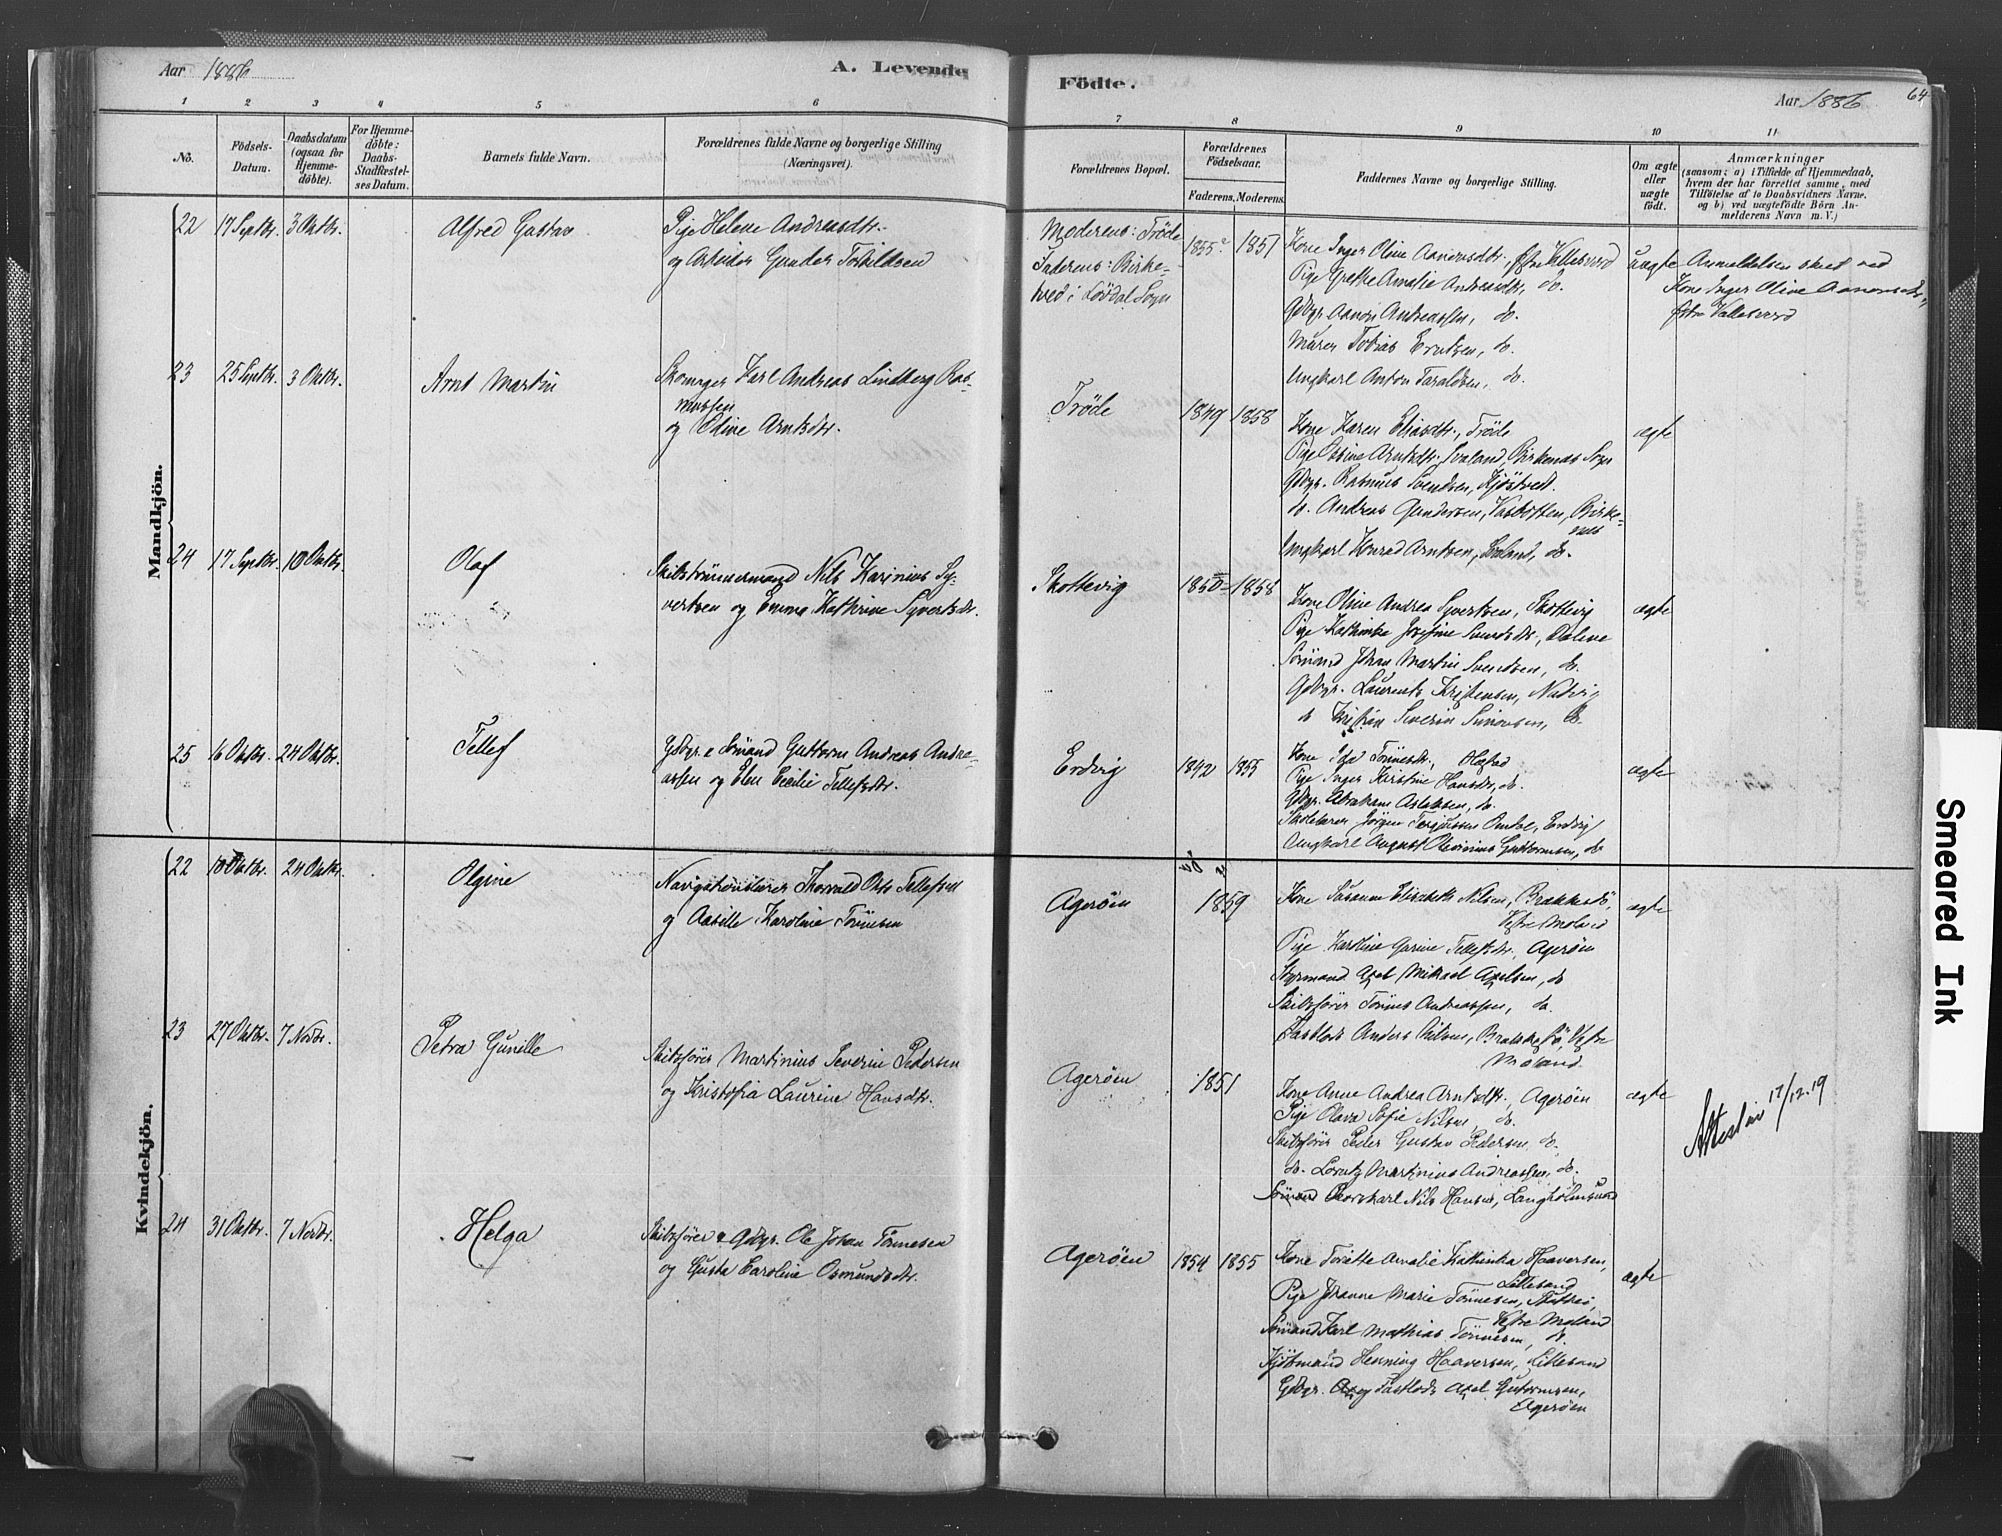 Aar 1886
A. Levende
Födte.
Aar 1886
64
1 2 3 4 5 6 7 8 9 10 11
No.
Födsels-
Datum.
Daabsdatum
(ogsaa for
Hjemme-
döbte).
For Hjemme-
döbte:
Daabs-
Stadfæstel-
ses Datum.
Barnets fulde Navn.
Forældrenes fulde Navne og borgerlige Stilling
(Næringsvei).
Forældrenes Bopæl.
Forældrenes
Födselsaar.
Faderens. Moderens.
Faddernes Navne og borgerlige Stilling.
Om ægte
eller
uægte
født.
Anmærkninger
(saasom: a) i Tilfælde af Hjemmedaab,
hvem der har forrettet samme, med
Tilföielse af to Daabsvidners Navne.
og b) ved uægtefödte Börn An-
melderens Navn m. V.)
Mandkjön.
22 17 Septbr. 3 Oktbr. Alfred Gustav
Pige Helene Andreasdtr.
og Arbeider Gunder Torkildsen
Moderens: Tröde
Faderens: Birke-
tved i Sogn
1855? 1851
Kone Inger Oline Aanonsdtr., Østre Vallesverd
Pige Grethe Amalie Andreasdtr., do.
Gdbgr. Aanon Andreassen, do.
Murer Tobias Erntsen, do.
Ungkarl Anton Taraldsen, do.
uægte
Anmeldelsen skeet ved
Kone Inger Oline Aanonsdtr.,
Østre Vallesverd
23 25 Septbr. 3 Oktbr. Arnt Martin
Skomager Karl Andreas Lindberg Ras-
mussen
og Oline Arntsdtr.
Tröde
1849 1858
Kone Karen Eliasdtr., Tröde
Pige Arntsdtr., Svaland, Birkenes Sogn
Gdbgr. Rasmus Svendsen, Kjöstvedt
do. Andreas Gundersen, Vasbotten, Birke-
nes
Ungkarl Konrad Arntsen, Svaland, do.
ægte
24 17 Septbr. 10 Oktbr. Olaf
Skibstömmermand Nils Karinius Sy-
vertsen og Emma Kathrine Syvertsdtr.
Skottevig
1850 1858
Kone Oline Andrea Syvertsen, Skottevig
Pige Kathinka Josefine Svendsdtr., Dalene
Sømand Johan Martin Svendsen, do.
Gdbgr. Laurents Kristensen, Natvig
do Kristian Severin Simonsen, do.
ægte
25 16 Oktbr. 24 Oktbr. Tellef
Gdbgr. & Sømand Guttorm Andreas Andre-
assen og Elen Cecilie Tellefsdtr.
Erdvig
1842 1855
Kone Tønnesdtr.,
Pige Inger Kirstine Hansdtr., do.
Gdbgr. Abraham Aslaksen, do.
Skolelærer Jörgen Terjussen Omdal, Erdvig
Ungkarl August Olevinius Guttormsen, do
ægte
Kvindekjön.
22 10 Oktbr. 24 Oktbr. Olgine
Navigationslærer Thorvald Tellefsen
og Aasille Karoline Tönnesen
Agerøen
1859
Kone Susanne Elisabeth Nilsen, Brækkestö,
Vestre Moland
Pige Karoline Garine Tellefsdtr., Agerøen
Styrmand Axel Mikael Axelsen, do
Skibsfører Tönnes Andreassen, do.
Fastlods Anders Nilsen, Brækkestö, Vestre
Moland.
ægte
23 27 Oktbr. 7 Novbr. Petra Gunille
Skibsfører Martinius Severin Pedersen
og Kristofia Laurine Hansdtr.
Agerøen
1851
Kone Anne Andrea Arntsdtr., Agerøen
Pige Olava Sofie Nilsen, do.
Skibsfører Peder Gustav Pedersen, do.
do. Lorentz Martinius Andreassen, do.
Sømand Nils Hansen, Langholmsund
ægte
Attest 17/12.19
24 31 Oktbr. 7 Novbr. Helga
Skibsfører & Gdbgr. Ole Johan Tönnesen
og Gusta Caroline Osmundsdtr.
Agerøen
1854 1855
Kone Amalie Kathinka Haaversen,
Lillesand
Pige Johanne Marie Tönnesen,
Vestre Moland
Sømand Karl Mathias Tönnesen, do.
Kjöbmand Henning Haaversen, Lillesand
Gdbgr. og Fastlods Axel Guttormsen,
Agerøen
ægte
Smeared Ink